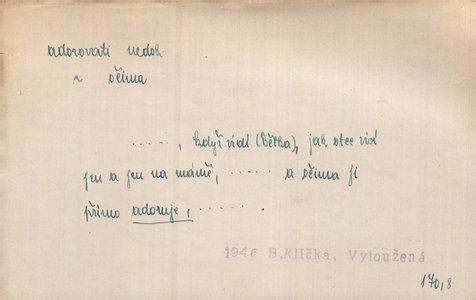 adorovati nedok
~ očima
....., když vidí (Bětka), jak otec visí
jen a jen na mámě, ...... a očima ji
přímo adoruje, ......
1946 B.Klička, Vytoužená
170,8